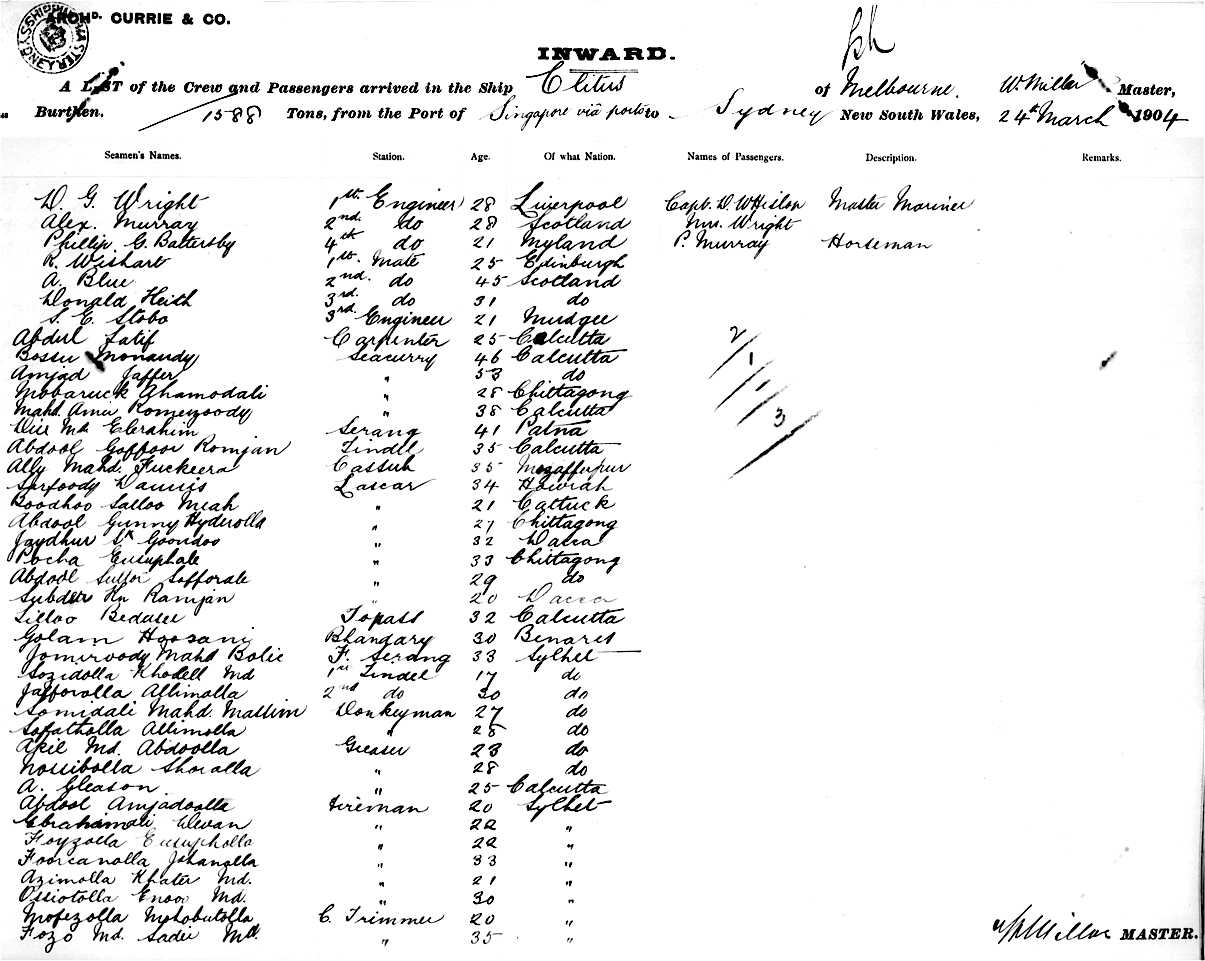 SHIPPING MASTER SYDNEY
ARCHD. CURRIE & CO.
INWARD.
A LIST of the Crew and Passengers arrived in the Ship Clitus of Melbourne. W. Millar Master,
Burthen. 1588 Tons, from the Port of Singapore via ports to Sydney New South Wales, 24th March 1904
Seamen's Names. Station. Age. Of what Nation. Names of Passengers. Description. Remarks.
D. G. Wright 1st. Engineer 28 Liverpool Capt. D. W Hislop Master Mariner
Alex. Murray 2nd do 28 Scotland Mrs. Wright
Phillip G. Battersby 4th do 21 Myland P. Murray Horseman
R. Wishart 1st. Mate 25 Edinburgh
A. Blue 2nd. do 45 Scotland
Donald Keith 3rd. do 31 do
S. E. Stobo 3rd. Engineer 21 Mudgee
Abdul Latif Carpenter 25 Calcutta
Bossu Monaudy Seacurry 46 Calcutta
Amjad Jaffer " 53 do
Mobaruck Ahamodali " 28 Chittagong
Mahd. Amir Romeyoody " 38 Calcutta
Md. Ebrahim Serang 41 Patna
Abdool Goffoor Romjan Tindel 35 Calcutta
Ally Mahd. Fuckeera Cassub 35 Mozafferpur
Lascar 34 Howrah
Boodhoo Salloo Meah " 21 Cattuck
Abdool Gunny Hyderolla " 27 Chittagong
Goondoo " 32 Dacca
Pocha Eusuphale " 33 Chittagong
Abdool Safforale " 29 do
Ramjan " 20 Dacca
Topass 32 Calcutta
Golam Hoosani Bhandary 30 Benares
Jomirvody Mahd Bolie F. Serang 33 Sylhet
Sozidolla Khodell Md 1st Tindel 17 do
Jafforolla Allimolla 2nd do 30 do
Somidali Mahd. Massim Donkeyman 27 do
Sofatholla Allimolla " 28 do
Akil Md. Abdoolla Greaser 23 do
Nossibolla Shoralla " 28 do
A. Gleason " 25 Calcutta
Abdool Amjadoolla Fireman 20 Sylhet
Ebrahimali Dewan " 22 "
Foyzolla Eusupholla " 22 "
Foorcanolla Johanolla " 33 "
Azimolla Khater Md. " 21 "
Ossiotolla Enoo Md. " 30 "
Mofezolla Mohobutolla C. Trimmer 20 "
Fozo Md. Sadei Md. " 35 "
2/1/1/3
W Millar MASTER.